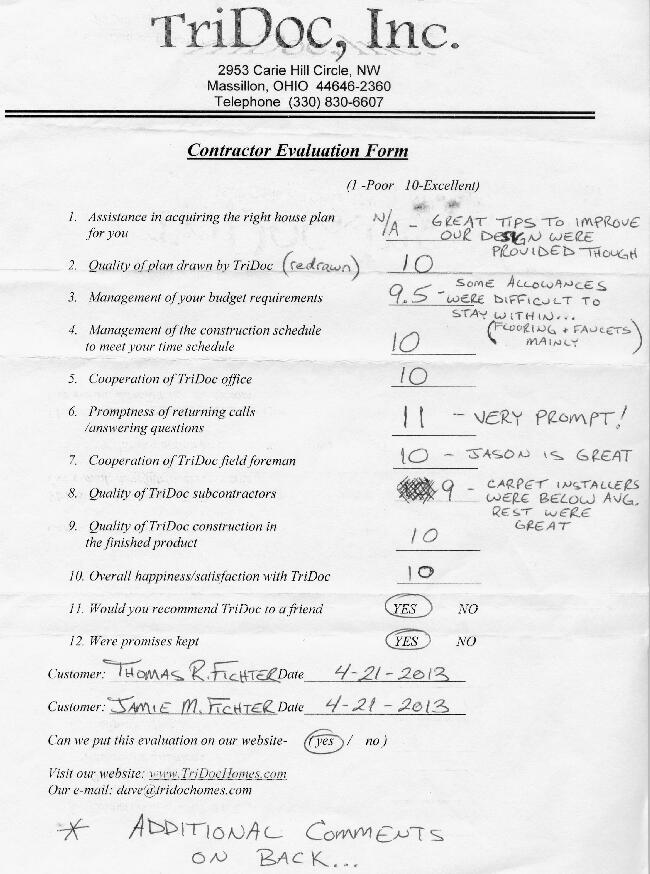 TriDoc, Inc.
2953 Carie Hill Circle, NW
Massillon, OHIO 44646-2360
Telephone (330) 830-6607
Contractor Evaluation Form
(1 -Poor 10-Excellent)
1. Assistance in acquiring the right house plan
for you
N/A - GREAT TIPS TO IMPROVE
OUR DESIGN WERE
PROVIDED THOUGH
2. Quality of plan drawn by TriDoc (redrawn) 10
3. Management of your budget requirements 9.5 - SOME ALLOWANCES
WERE DIFFICULT TO
STAY WITHIN...
(FLOORING + FAUCETS
MAINLY)
4. Management of the construction schedule
to meet your time schedule 10
5. Cooperation of TriDoc office 10
6. Promptness of returning calls
/answering questions 11 - VERY PROMPT!
7. Cooperation of TriDoc field foreman 10 - JASON IS GREAT
8. Quality of TriDoc subcontractors 9 - CARPET INSTALLERS
WERE BELOW AVG.
REST WERE
GREAT
9. Quality of TriDoc construction in
the finished product 10
10. Overall happiness/satisfaction with TriDoc 10
11. Would you recommend TriDoc to a friend YES NO
12. Were promises kept YES NO
Customer: THOMAS R. FICHTER Date 4-21-2013
Customer: JAMIE M. FICHTER Date 4-21-2013
Can we put this evaluation on our website- (yes / no)
Visit our website: www.TriDocHomes.com
Our e-mail: dave@tridochomes.com
* ADDITIONAL COMMENTS
ON BACK...